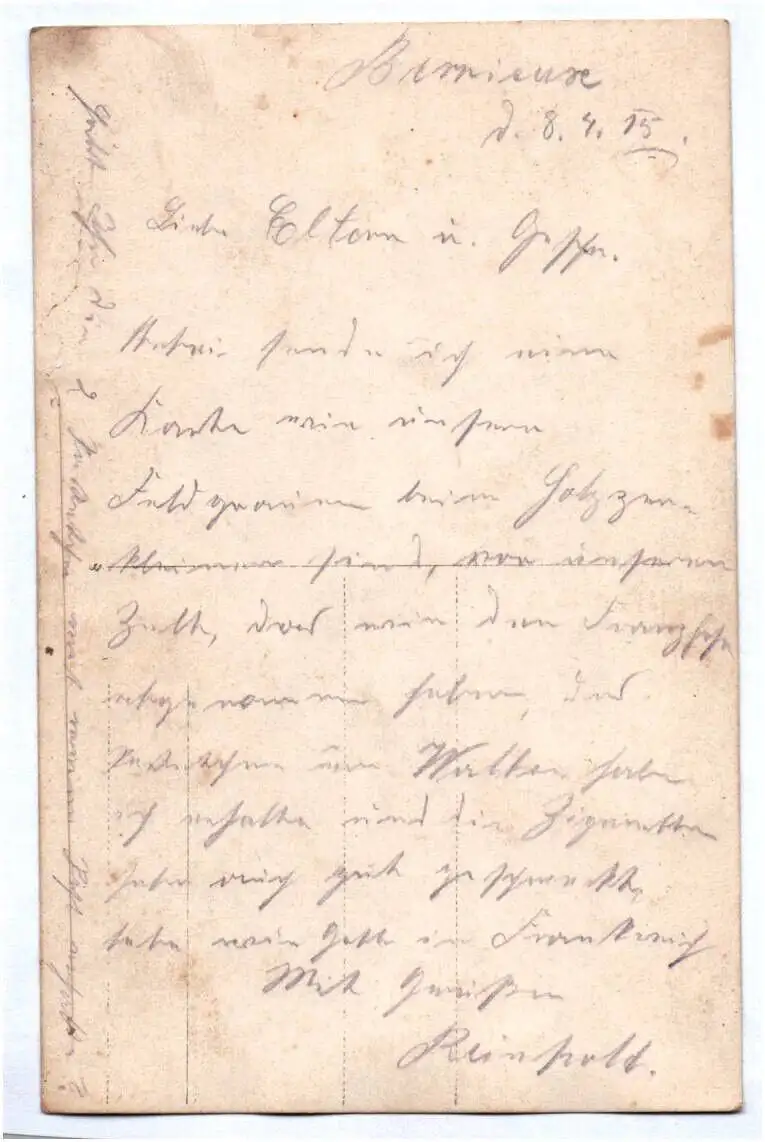 d. 8. 4. 15.
Liebe Eltern u. Geschw.
Anbei sende ich eine
Karte wie unsere
Feldgrauen beim Holzzer-
kleinern sind, vor unseren
Zelt, das wir den Franzosen
abgenommen haben, das
Päckchen von Walter habe
ich erhalten und die Zigaretten
haben auch gut geschmeckt,
lebe wie Gott in Frankreich
Mit Grüßen
Reinhold.
Habt Ihr die
Päckchen mit meine